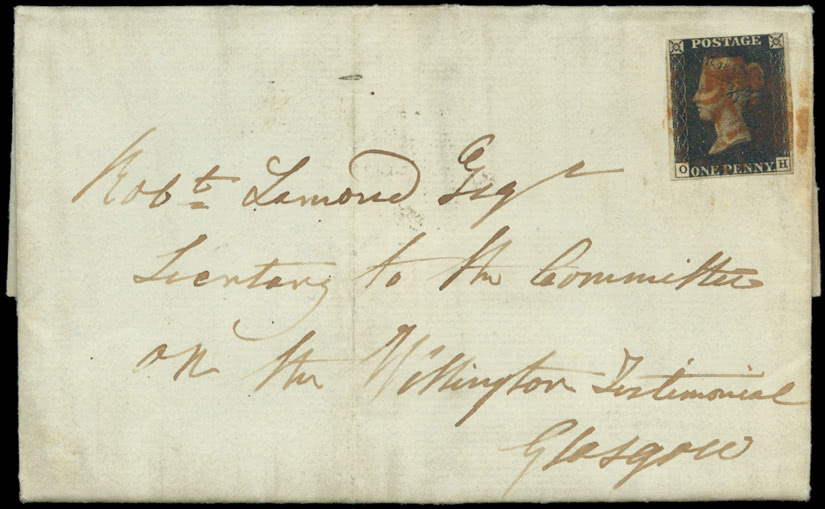 POSTAGE
O H
ONE PENNY
Robt Lamond Esqr
Secretary to the Committee
on the Wellington Testimonial
Glasgow